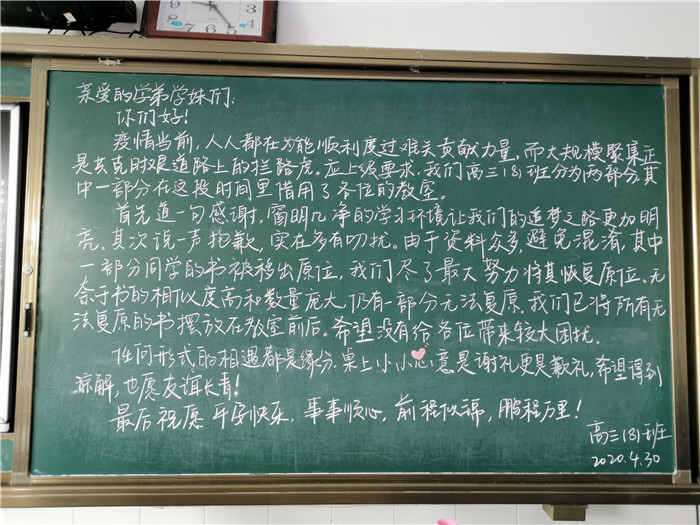 亲爱的学弟学妹们:
你们好!
疫情当前,人人都在为能顺利度过难关贡献力量,而大规模聚集正
是共克时艰道路上的拦路虎。应上级要求,我们高三(8)班分为两部分,其
中一部分在这段时间里借用了各位的教室。
首先道一句感谢,窗明几净的学习环境让我们的追梦之路更加明
亮。其次说一声抱歉,实在多有叨扰。由于资料众多,避免混淆,其中
一部分同学的书被移出原位,我们尽了最大努力将其恢复原位。无
奈于书的相似度高和数量庞大,仍有一部分无法复原。我们已将所有无
法复原的书摆放在教室前后。希望没有给各位带来较大困扰。
任何形式的相遇都是缘分,桌上小小心意是谢礼更是歉礼,希望得到
谅解,也愿友谊长青!
最后祝愿平安快乐,事事顺心,前程似锦,鹏程万里!
高三(8)班
2020.4.30